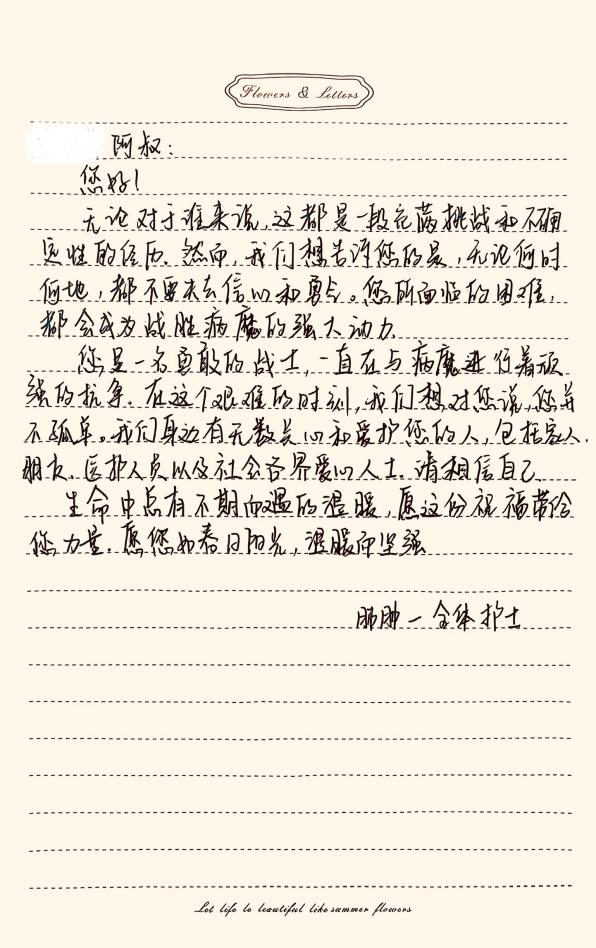 Flowers & Letters
阿叔：
您好！
无论对于谁来说，这都是一段充满挑战和不确
定性的经历。然而，我们想告诉您的是，无论何时
何地，都不要失去信心和勇气。您所面临的困难，
都会成为战胜病魔的强大动力。
您是一名勇敢的战士，一直在与病魔进行着顽
强的抗争。在这个艰难的时刻，我们想对您说，您并
不孤单。我们身边有无数关心和爱护您的人，包括家人、
朋友、医护人员以及社会各界爱心人士。请相信自己
生命中总有不期而遇的温暖，愿这份祝福带给
您力量。愿您如春日阳光，温暖而坚强
肺肿一全体护士
Let life be beautiful like summer flowers